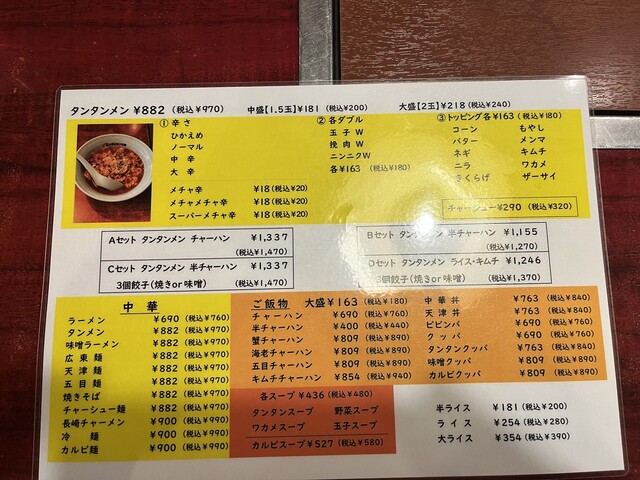 タンタンメン ¥882 (税込¥970) 中盛【1.5玉】¥181 (税込¥200) 大盛【2玉】¥218 (税込¥240)
①辛さ
ひかえめ
ノーマル
中辛
大辛
メチャ辛 ¥18(税込¥20)
メチャメチャ辛 ¥18(税込¥20)
スーパーメチャ辛 ¥18(税込¥20)
②各ダブル
玉子W
挽肉W
ニンニクW
各¥163 (税込¥180)
③トッピング各¥163 (税込¥180)
コーン もやし
バター メンマ
ネギ キムチ
ニラ ワカメ
きくらげ ザーサイ
チャーシュー¥290 (税込¥320)
Aセット タンタンメン チャーハン ¥1,337
(税込¥1,470)
Cセット タンタンメン 半チャーハン ¥1,337
3個餃子(焼きor味噌) (税込¥1,470)
Bセット タンタンメン 半チャーハン ¥1,155
(税込¥1,270)
Dセット タンタンメン ライス・キムチ ¥1,246
3個餃子(焼きor味噌) (税込¥1,370)
中華
ラーメン ¥690 (税込¥760)
タンメン ¥882 (税込¥970)
味噌ラーメン ¥882 (税込¥970)
広東麺 ¥882 (税込¥970)
天津麺 ¥882 (税込¥970)
五目麺 ¥882 (税込¥970)
焼きそば ¥882 (税込¥970)
チャーシュー麺 ¥882 (税込¥970)
長崎チャーメン ¥900 (税込¥990)
冷麺 ¥900 (税込¥990)
カルビ麺 ¥900 (税込¥990)
ご飯物 大盛¥163 (税込¥180)
チャーハン ¥690 (税込¥760)
半チャーハン ¥400 (税込¥440)
蟹チャーハン ¥809 (税込¥890)
海老チャーハン ¥809 (税込¥890)
五目チャーハン ¥809 (税込¥890)
キムチチャーハン ¥854 (税込¥940)
中華丼 ¥763 (税込¥840)
天津丼 ¥763 (税込¥840)
ビビンバ ¥690 (税込¥760)
クッパ ¥690 (税込¥760)
タンタンクッパ ¥763 (税込¥840)
味噌クッパ ¥809 (税込¥890)
カルビクッパ ¥809 (税込¥890)
各スープ ¥436 (税込¥480)
タンタンスープ 野菜スープ
ワカメスープ 玉子スープ
カルビスープ ¥527 (税込¥580)
半ライス ¥181 (税込¥200)
ライス ¥254 (税込¥280)
大ライス ¥354 (税込¥390)